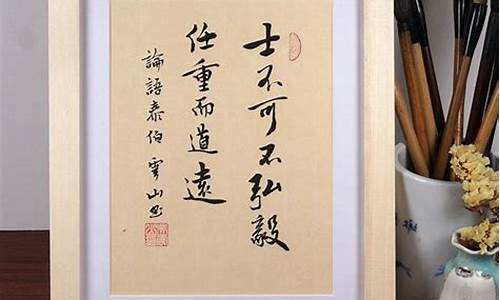 士不可不弘毅
任重而道遠
論語泰伯雲山书